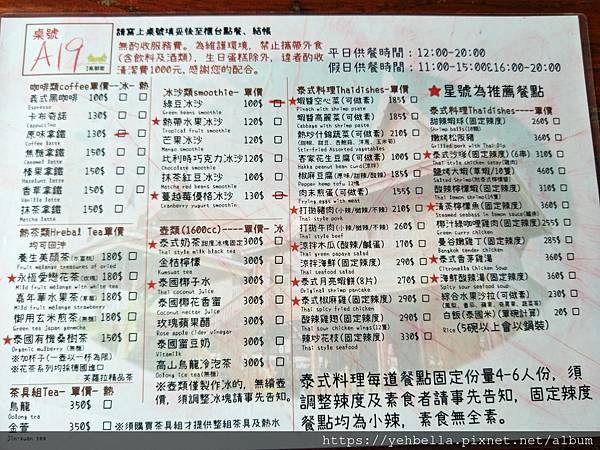 桌號
A19
請寫上桌號填妥快至櫃台點餐、結帳
無酌收服務費。為維護環境，禁止攜帶外食
(含飲料及酒類)，生日蛋糕除外，違者酌收
清潔費1000元，感謝您的配合。
平日供餐時間：12:00-20:00
假日供餐時間：11:00-15:00£16:00-20:00
咖啡類coffee單價—冰- 熱
義式黑咖啡 100$
Espresso
卡布奇諾 130$
Cappuccino
原味拿鐵 130$
Coffee latte
焦糖拿鐵 150$
Caramel latte
榛果拿鐵 150$
Hazelnut latte
香草拿鐵 150$
Vanilla latte
抹茶拿鐵 150$
Matcha latte
熱茶類Hrebal Tea單價
均可回沖
養生美顏茶 180$
Fruit mélange treasures of dried
★永恆愛戀花茶 180$
Mild fruit mélange with white tea
嘉年華水果茶 180$
Mild fruit mélange strawberry
御用玄米煎茶 180$
Green tea japan genmcha
★泰國有機桑樹茶 150$
Organic mulberry
※加杯子(一壺以一杯為限)
※花茶系列均採德國進口
芙蘿拉精品茶
茶具組Tea- 單價- 熱
烏龍 350$
Oolong tea
金萱 350$
Jin-xuan tea
※須購買茶具組才提供整組茶具及熱水
冰沙類smoothie- 單價
綠豆冰沙 100$
Green beans smoothie
★熱帶水果冰沙 120$
Tropical fruit smoothie
芒果冰沙 120$
Mango smoothie
比利時巧克力冰沙120$
Chocolate smoothie
抹茶紅豆冰沙 120$
Matcha red beans smoothie
★蔓越莓優格冰沙 130$
Cranberry yogurt smoothie
壺類(1600cc)----單價- 冰
★泰式奶茶 甜度冰塊固定 300$
Thai style milk black tea
金桔檸檬 300$
Kumquat tea
★泰國椰子水 300$
Thai coconut juice
泰國椰花香蜜 300$
Coconut nectar juice
玫瑰蘋果醋 300$
Rose apple cider vinegar
泰國蜜豆奶 300$
Vitamilk
高山烏龍冷泡茶 300$
Oolong ice tea
※壺類僅製作冰的，無續壺
價，須調整冰塊請事先告知。
泰式料理Thaidishes-單價
★蝦醬空心菜(可做素) 185$
Pinach with shrimp paste
蝦醬高麗菜(可做素) 185$
Cabbage with shrimp paste
熱炒什錦蔬菜(可做素) 210$
Stir-fried Assorted vegetables
客家花生豆腐(可做素) 100$
Hakka peanut bean curd
椒麻豆腐 180$
Peppey hemp tofu
肉末煎蛋(可做素) 155$
Thai style fried egg
★打拋豬肉(小辣/微辣/不辣) 210$
Thai style pork
打拋牛肉(小辣/微辣/不辣) 260$
Thai style beef
★涼拌木瓜(酸辣/鹹酸) 170$
Thai green papaya salad
涼拌海鮮(固定辣度) 250$
Thai seafood salad
★泰式月亮蝦餅(8片) 270$
Original shrimp pancake
★泰式椒麻雞(固定辣度) 290$
Thai spicy fried chicken
酸辣雞翅(固定辣度) 210$
Thai sour chicken wings(12隻)
辣炒花枝(固定辣度) 330$
Thai style seafood
★星號為推薦餐點
泰式料理Thaidishes----單價
甜辣蝦球(固定辣度) 260$
Shrimp balls(10顆)
嫩烤松阪豬 320$
Grilled pork with Thai Dip
★泰式沙嗲(固定辣度)(6串) 310$
Thai style chicken satay(雞肉)
鹽烤大蝦(草蝦/10隻) 460$
Salted Shrimp
酸辣檸檬蝦(固定辣度) 310$
Thai lemon shrimp
★清蒸檸檬魚(固定辣度) 310$
Steamed seabass in lemon sauce
椰汁綠咖哩雞肉(固定辣度) 255$
Green Curry Chicken
曼谷嫩雞丁(固定辣度) 285$
Bangkok tender chicken
★泰式香茅雞湯 365$
Citronella Chicken Soup
★海鮮酸辣湯(固定辣度) 365$
Spicy and sour seafood soup
綜合水果沙拉(可做素) 230$
白飯(泰國米)(單碗計算) 20$
Rice (5碗以上會以鍋裝)
泰式料理每道餐點固定份量4-6人份，須
調整辣度及素食者請事先告知，固定辣度
餐點均為小辣，素食無全素。
https://yehbella.pixnet.net/album